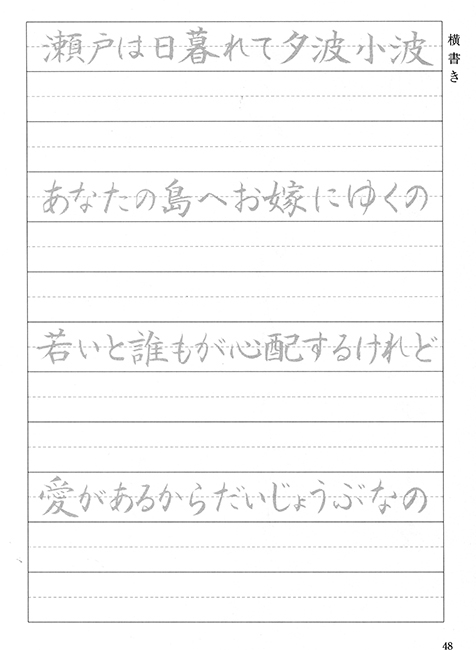 横書き
瀬戸は日暮れて夕波小波
あなたの島へお嫁にゆくの
若いと誰もが心配するけれど
愛があるからだいじょうぶなの
48